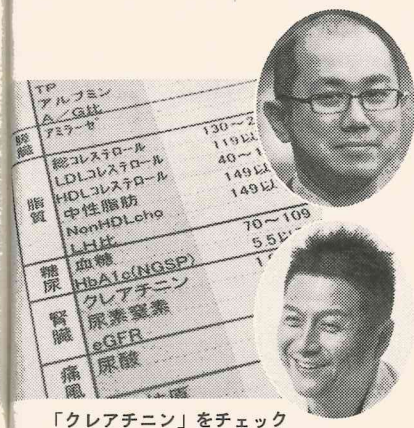 TP
アルブミン
A／G比
膵臓 アミラーゼ
脂質 総コレステロール 130～2
LDLコレステロール 119以
HDLコレステロール 40～1
中性脂肪 149以
NonHDLcho 149以
LH比
糖尿 血糖 70～109
HbA1c(NGSP) 5.5以
腎臓 クレアチニン
尿素窒素
eGFR
痛風 尿酸
「クレアチニン」をチェック